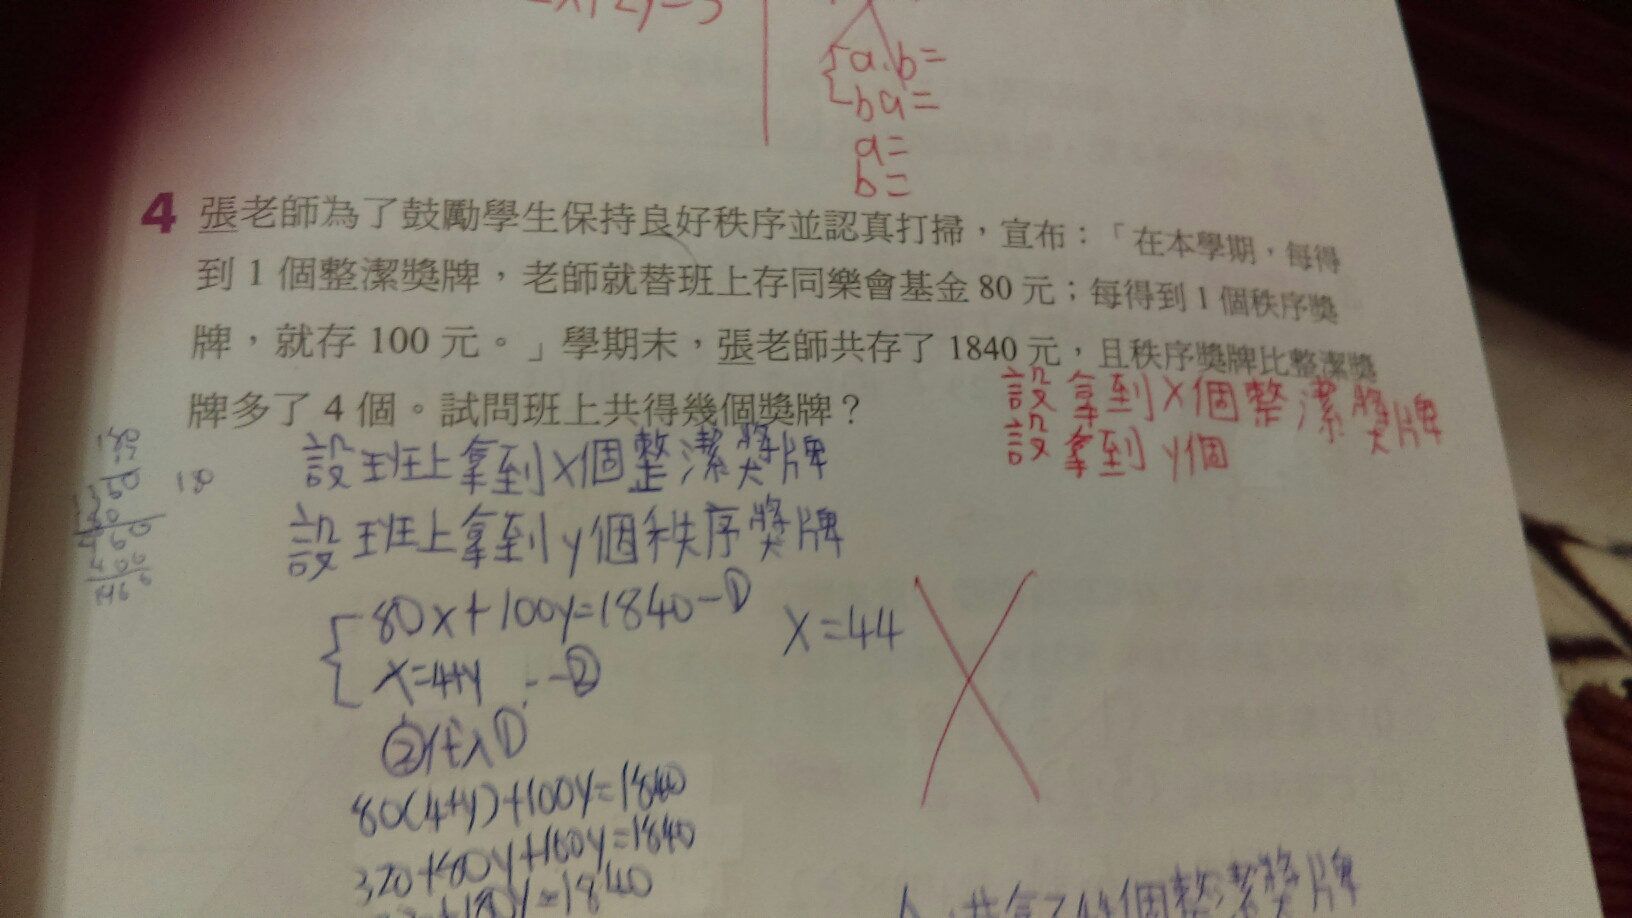 2y=3
a.b=
ba=
a=
b=
4 張老師為了鼓勵學生保持良好秩序並認真打掃，宣布：「在本學期，每得
到 1 個整潔獎牌，老師就替班上存同樂會基金 80 元；每得到 1 個秩序獎
牌，就存 100 元。」學期末，張老師共存了 1840 元，且秩序獎牌比整潔獎
牌多了 4 個。試問班上共得幾個獎牌？
設拿到X個整潔獎牌
設拿到y個
設班上拿到X個整潔獎牌
設班上拿到y個秩序獎牌
180
180
80x+100y=1840-①
x=4+y --②
X=44
②代入①
80(4+y)+100y=1840
320+80y+100y=1840
+180y=1840
共拿了44個整潔獎牌